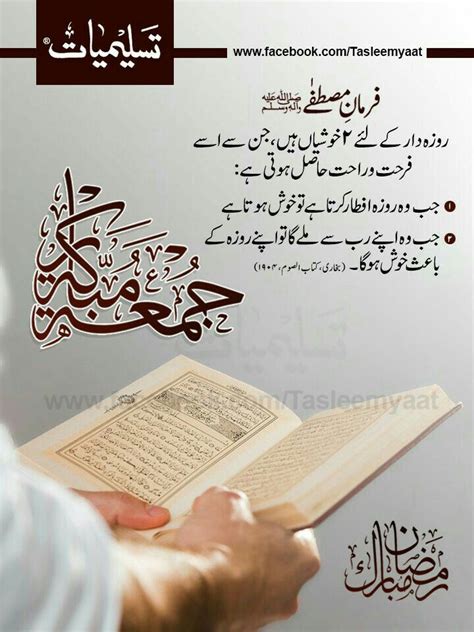 تسلیمیات®
www.facebook.com/Tasleemyaat
فرمانِ مصطفےٰ ﷺ
روزہ دار کے لئے ۲ خوشیاں ہیں، جن سے اسے
فرحت و راحت حاصل ہوتی ہے:
۱ جب وہ روزہ افطار کرتا ہے تو خوش ہوتا ہے
۲ جب وہ اپنے رب سے ملے گا تو اپنے روزہ کے
باعث خوش ہوگا۔ (بخاری، کتاب الصوم، ۱۹۰۴)
جمعہ مبارک
تسلیمیات
www.facebook.com/Tasleemyaat
رمضان
مبارک